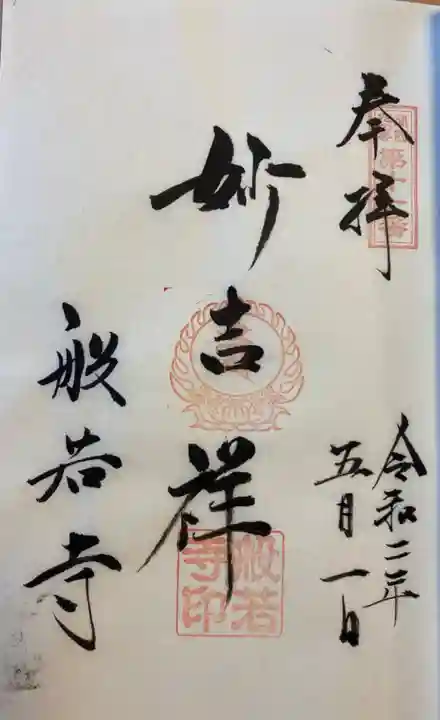 奉拝
第十一番
令和二年
五月一日
妙吉祥
般若寺
般若
寺印